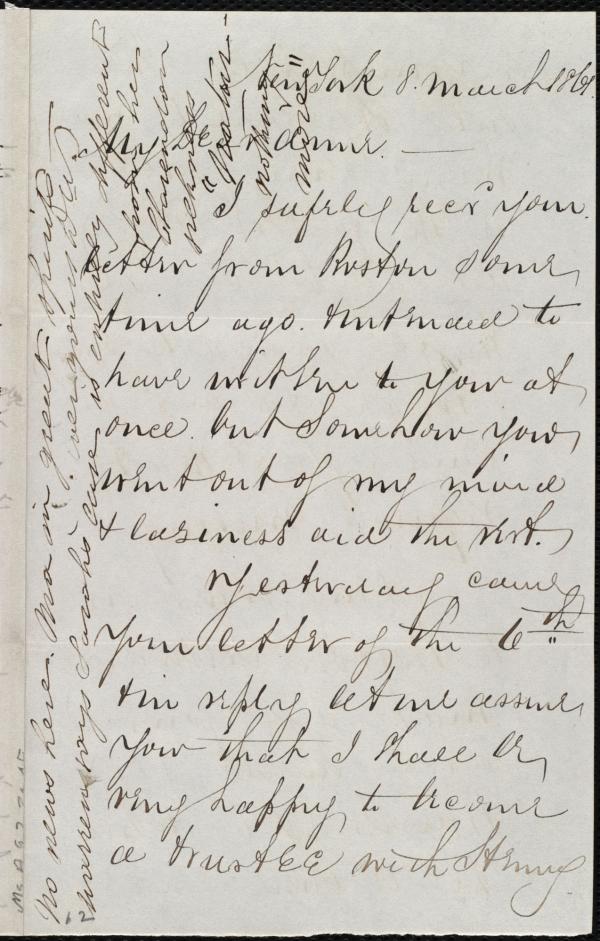 New York 8. March 1861.
My Dear Anne. —
I safely rec'd your
letter from Boston some
time ago. & intended to
have written to you at
once. but somehow you
went out of my mind
& laziness did the rest.
Yesterday came
your letter of the 6th
& in reply let me assure
you that I shall be
very happy to become
a trustee with Henry
No news here. Ma in great spirits
over your
Warren says Sarah's case is entirely different
from her
"Water:
nothing
more"
Ms A 9.2
12